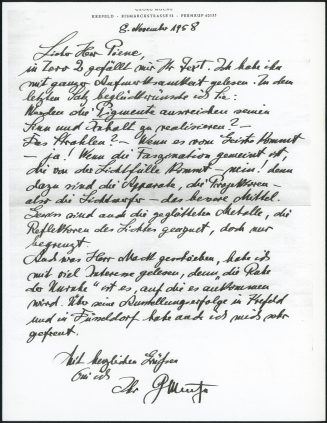 KREFELD · BISMARCKSTRASSE · FERNRUF
8. November 1958
Lieber Herr Piene,
in Zero 2 gefällt mir Ihr Text. Ich habe ihn
mit ganzer Aufmerksamkeit gelesen. In dem
letzten Satz beglückwünsche ich Sie:
Würden die Pigmente ausreichen seinen
Sinn und Inhalt zu realisieren? —
Das Strahlen? — Wenn es vom Geiste kommt
– ja! Wenn die Faszination gemeint ist,
die von der Lichtfülle kommt – nein! denn
dazu sind die Apparate, die Projektoren –
also die Lichtwerfer – das bessere Mittel.
sind auch die geglätteten Metalle, die
Reflektoren des Lichtes geeignet, doch nur
begrenzt.
Auch was Herr Mack geschrieben, habe ich
mit viel Interesse gelesen, denn „die Ruhe
der Unruhe" ist es, auf die es ankommen
wird. Über seine Ausstellungserfolge in Krefeld
und in Düsseldorf habe auch ich mich sehr
gefreut.
Mit herzlichen Grüßen
bin ich
Ihr G. Muche